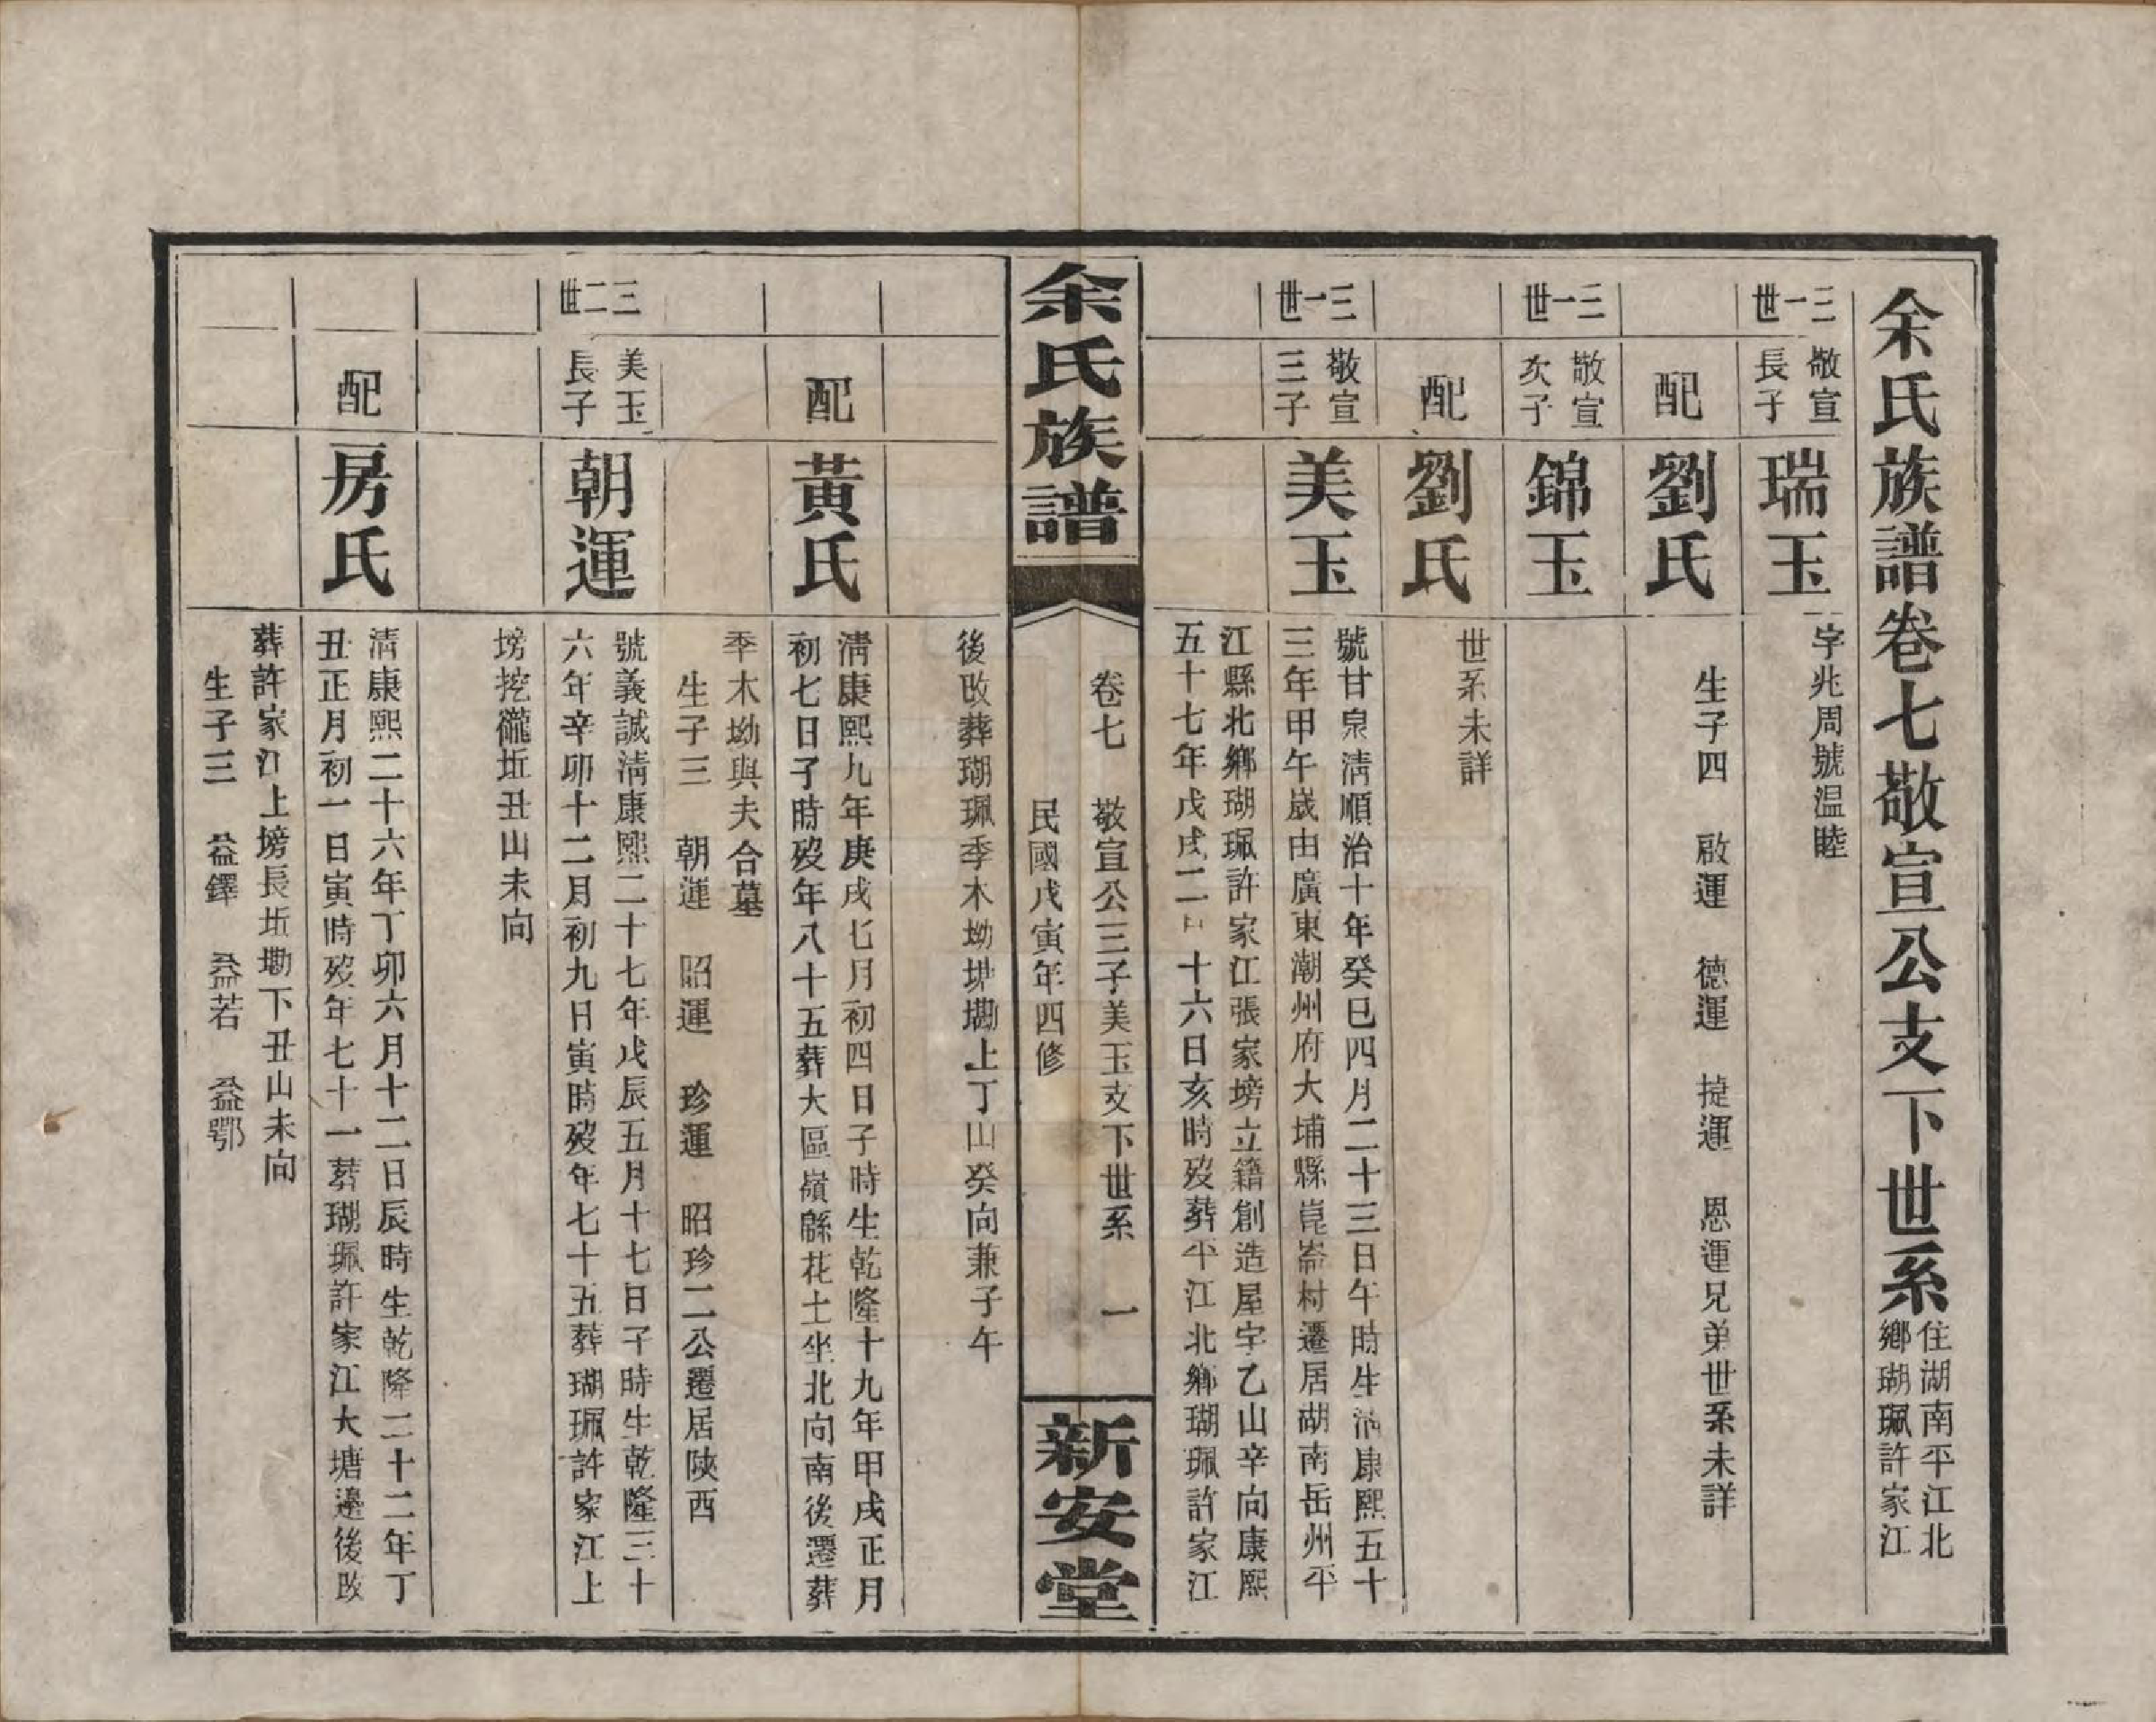 余氏族譜卷七敬宣公支下世系
住湖南平江北
鄉瑚珮許家江
三一世
敬宣
長子
瑞玉
字兆周號温睦
配
劉氏
生子四　啟運　德運　捷運　恩運兄弟世系未詳
三一世
敬宣
次子
錦玉
配
劉氏
世系未詳
三一世
敬宣
三子
美玉
號甘泉清順治十年癸巳四月二十三日午時生清康熙五十
三年甲午歲由廣東潮州府大埔縣崑崙村遷居湖南岳州平
江縣北鄉瑚珮許家江張家塝立籍創造屋宇乙山辛向康熙
五十七年戊戌二月十六日亥時歿葬平江北鄉瑚珮許家江
余氏族譜
卷七　敬宣公三子美玉支下世系　一
民國戊寅年四修
新安堂
後改葬瑚珮季木坳塅墈上丁山癸向兼子午
配
黃氏
清康熙九年庚戌七月初四日子時生乾隆十九年甲戌正月
初七日子時歿年八十五葬大區嶺緜花土坐北向南後遷葬
季木坳與夫合墓
生子三　朝運　昭運　珍運　昭珍二公遷居陝西
三二世
美玉
長子
朝運
號義誠清康熙二十七年戊辰五月十七日子時生乾隆三十
六年辛卯十二月初九日寅時歿年七十五葬瑚珮許家江上
塝挖礲坵丑山未向
配
房氏
清康熙二十六年丁卯六月十二日辰時生乾隆二十二年丁
丑正月初一日寅時歿年七十一葬瑚珮許家江大塘邊後改
葬許家江上塝長坵墈下丑山未向
生子三　益鐸　益若　益鄂